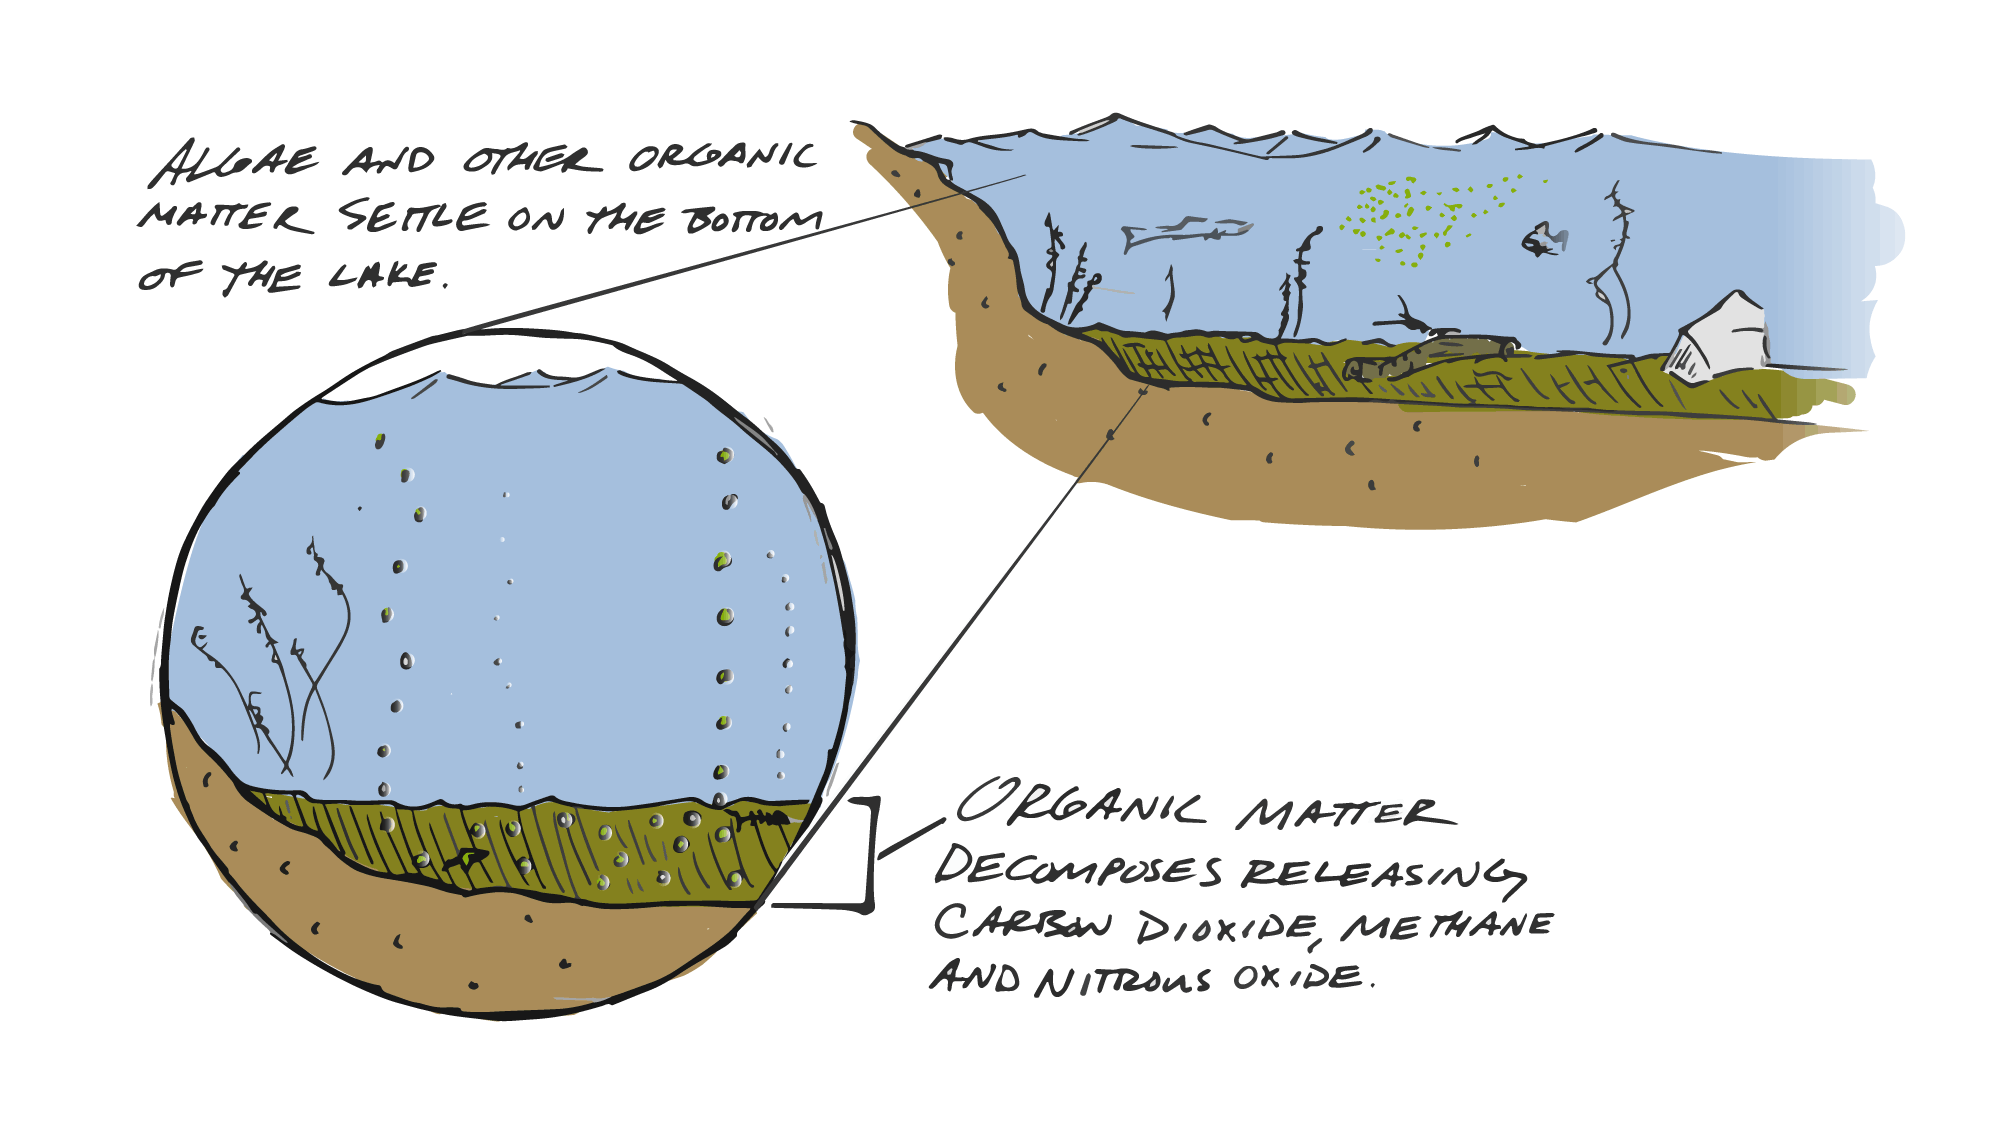 ALGAE AND OTHER ORGANIC
MATTER SETTLE ON THE BOTTOM
OF THE LAKE.
ORGANIC MATTER
DECOMPOSES RELEASING
CARBON DIOXIDE, METHANE
AND NITROUS OXIDE.